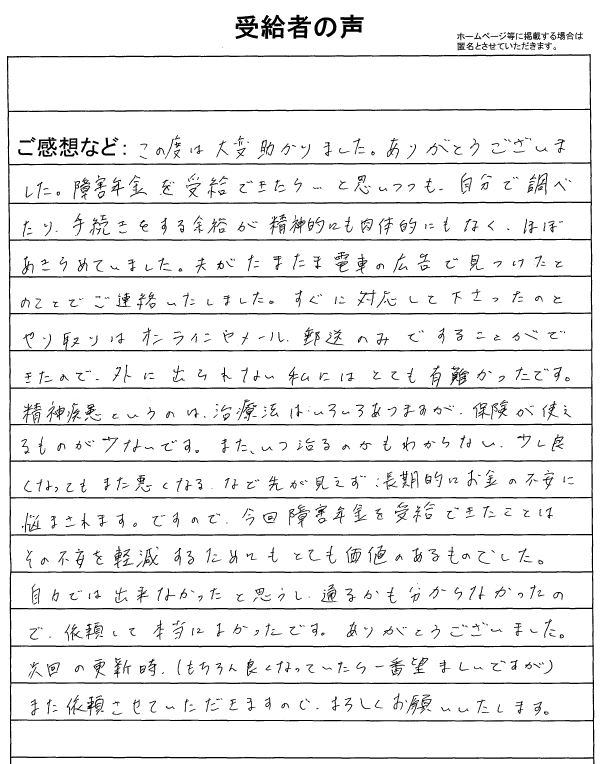 受給者の声
ホームページ等に掲載する場合は
匿名とさせていただきます。
ご感想など：この度は大変助かりました。ありがとうございま
した。障害年金を受給できたら…と思いつつも、自分で調べ
たり、手続きをする余裕が精神的にも肉体的にもなく、ほぼ
あきらめていました。夫がたまたま電車の広告で見つけたと
のことでご連絡いたしました。すぐに対応して下さったのと
やり取りはオンラインやメール、郵送のみですることがで
きたので、外に出られない私にはとても有難かったです。
精神疾患というのは、治療法はいろいろありますが、保険が使え
るものが少ないです。また、いつ治るのかもわからない、少し良
くなってもまた悪くなる、など先が見えず、長期的にお金の不安に
悩まされます。ですので、今回障害年金を受給できたことは
その不安を軽減するためにもとても価値のあるものでした。
自力では出来なかったと思うし、通るかも分からなかったの
で、依頼して本当によかったです。ありがとうございました。
次回の更新時、（もちろん良くなっていたら一番望ましいですが）
また依頼させていただきますので、よろしくお願いいたします。